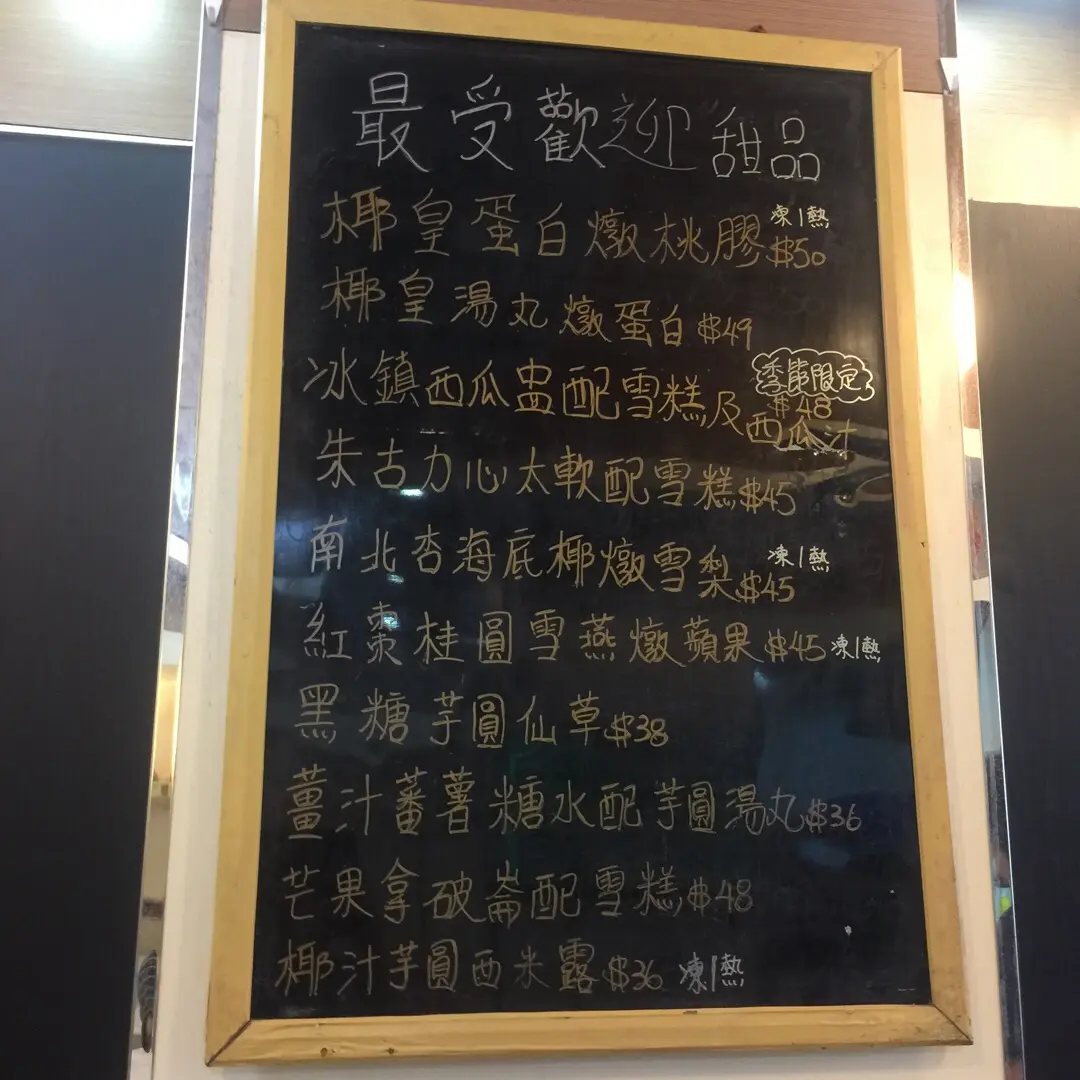 最受歡迎"甜品
椰皇蛋白燉桃膠 凍/熱 $50
椰皇湯丸燉蛋白 $49
冰鎮西瓜盅配雪糕及西瓜汁 季節限定 $48
朱古力心太軟配雪糕 $45
南北杏海底椰燉雪梨 凍/熱 $45
紅棗桂圓雪燕燉蘋果 $45 凍/熱
黑糖芋圓仙草 $38
薑汁蕃薯糖水配芋圓湯丸 $36
芒果拿破崙配雪糕 $48
椰汁芋圓西米露 $36 凍/熱